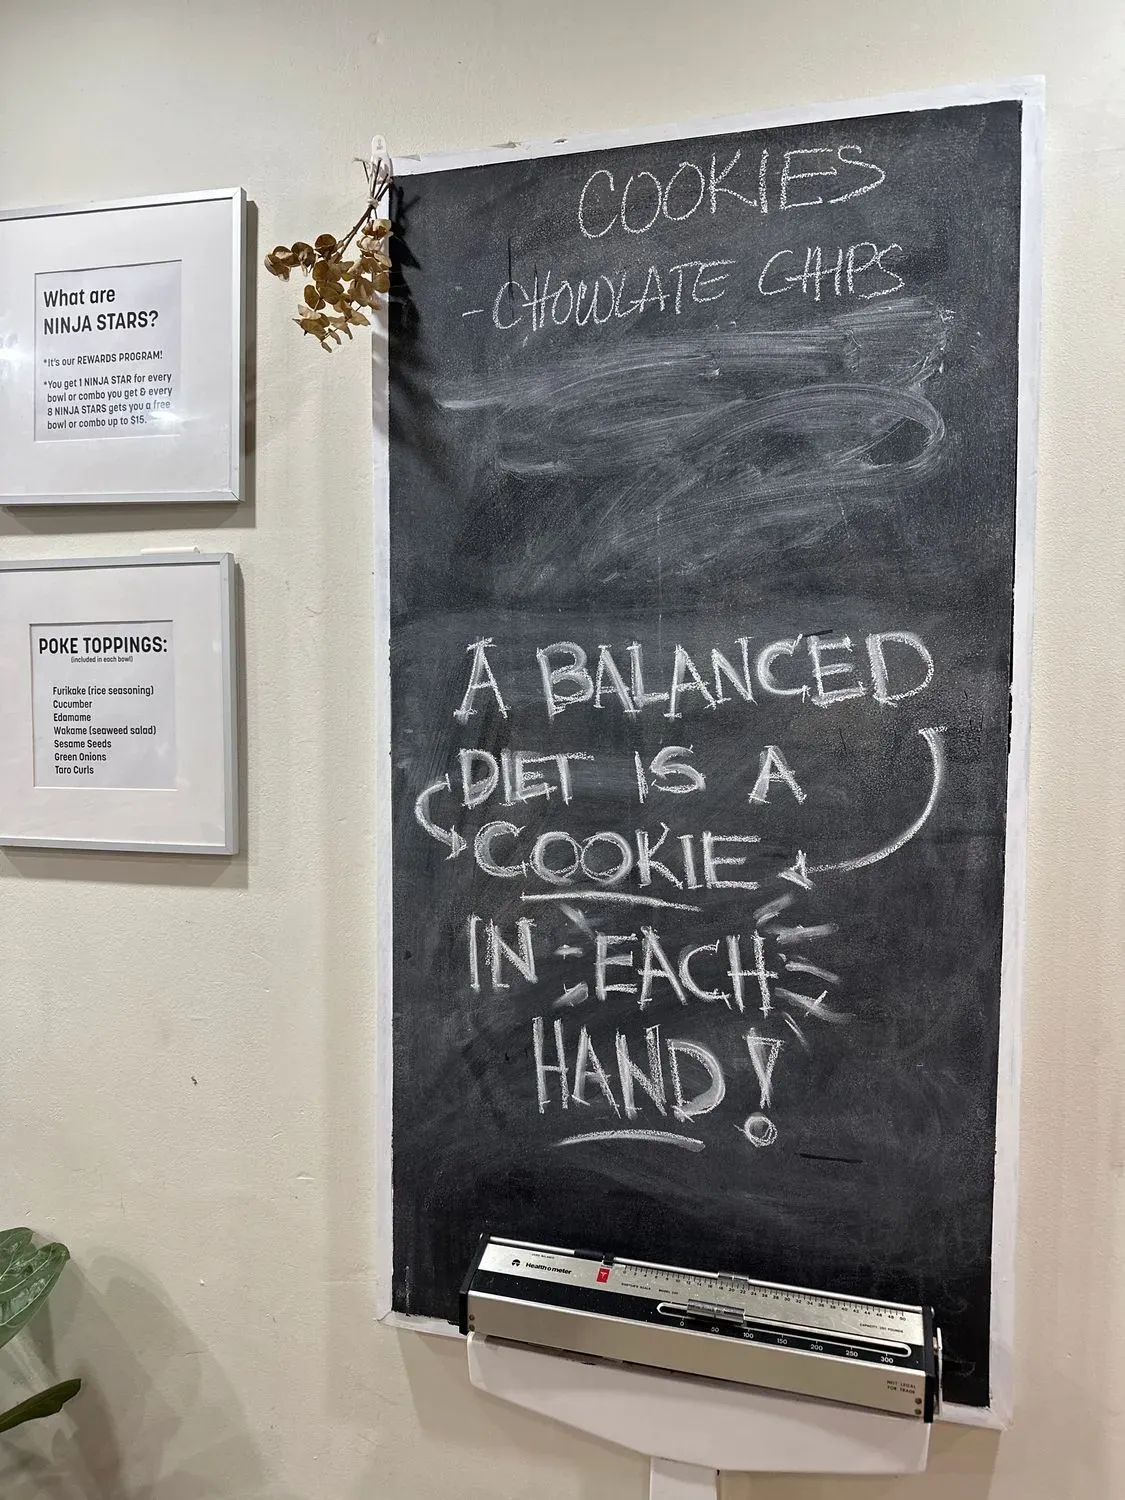 What are
NINJA STARS?
*It's our REWARDS PROGRAM!
*You get 1 NINJA STAR for every
bowl or combo you get & every
8 NINJA STARS gets you a free
bowl or combo up to $15.
POKE TOPPINGS:
(included in each bowl)
Furikake (rice seasoning)
Cucumber
Edamame
Wakame (seaweed salad)
Sesame Seeds
Green Onions
Taro Curls
COOKIES
- CHOCOLATE CHIPS
A BALANCED
DIET IS A
COOKIE
IN EACH
HAND!
Health o meter
0 50 100 150 200 250 300
NOT LEGAL
FOR TRADE